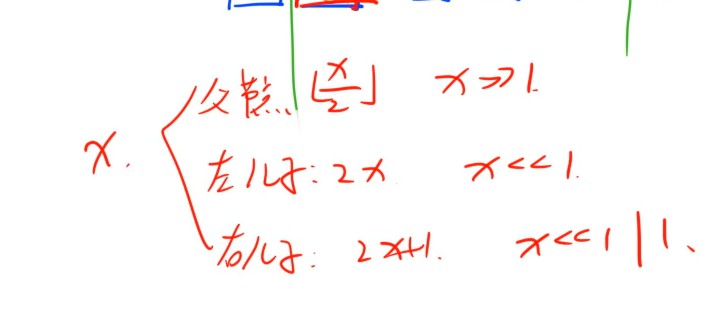 父节点: ⌊x/2⌋ x>>1.
x.
左儿子: 2x x<<1.
右儿子: 2x+1. x<<1|1、